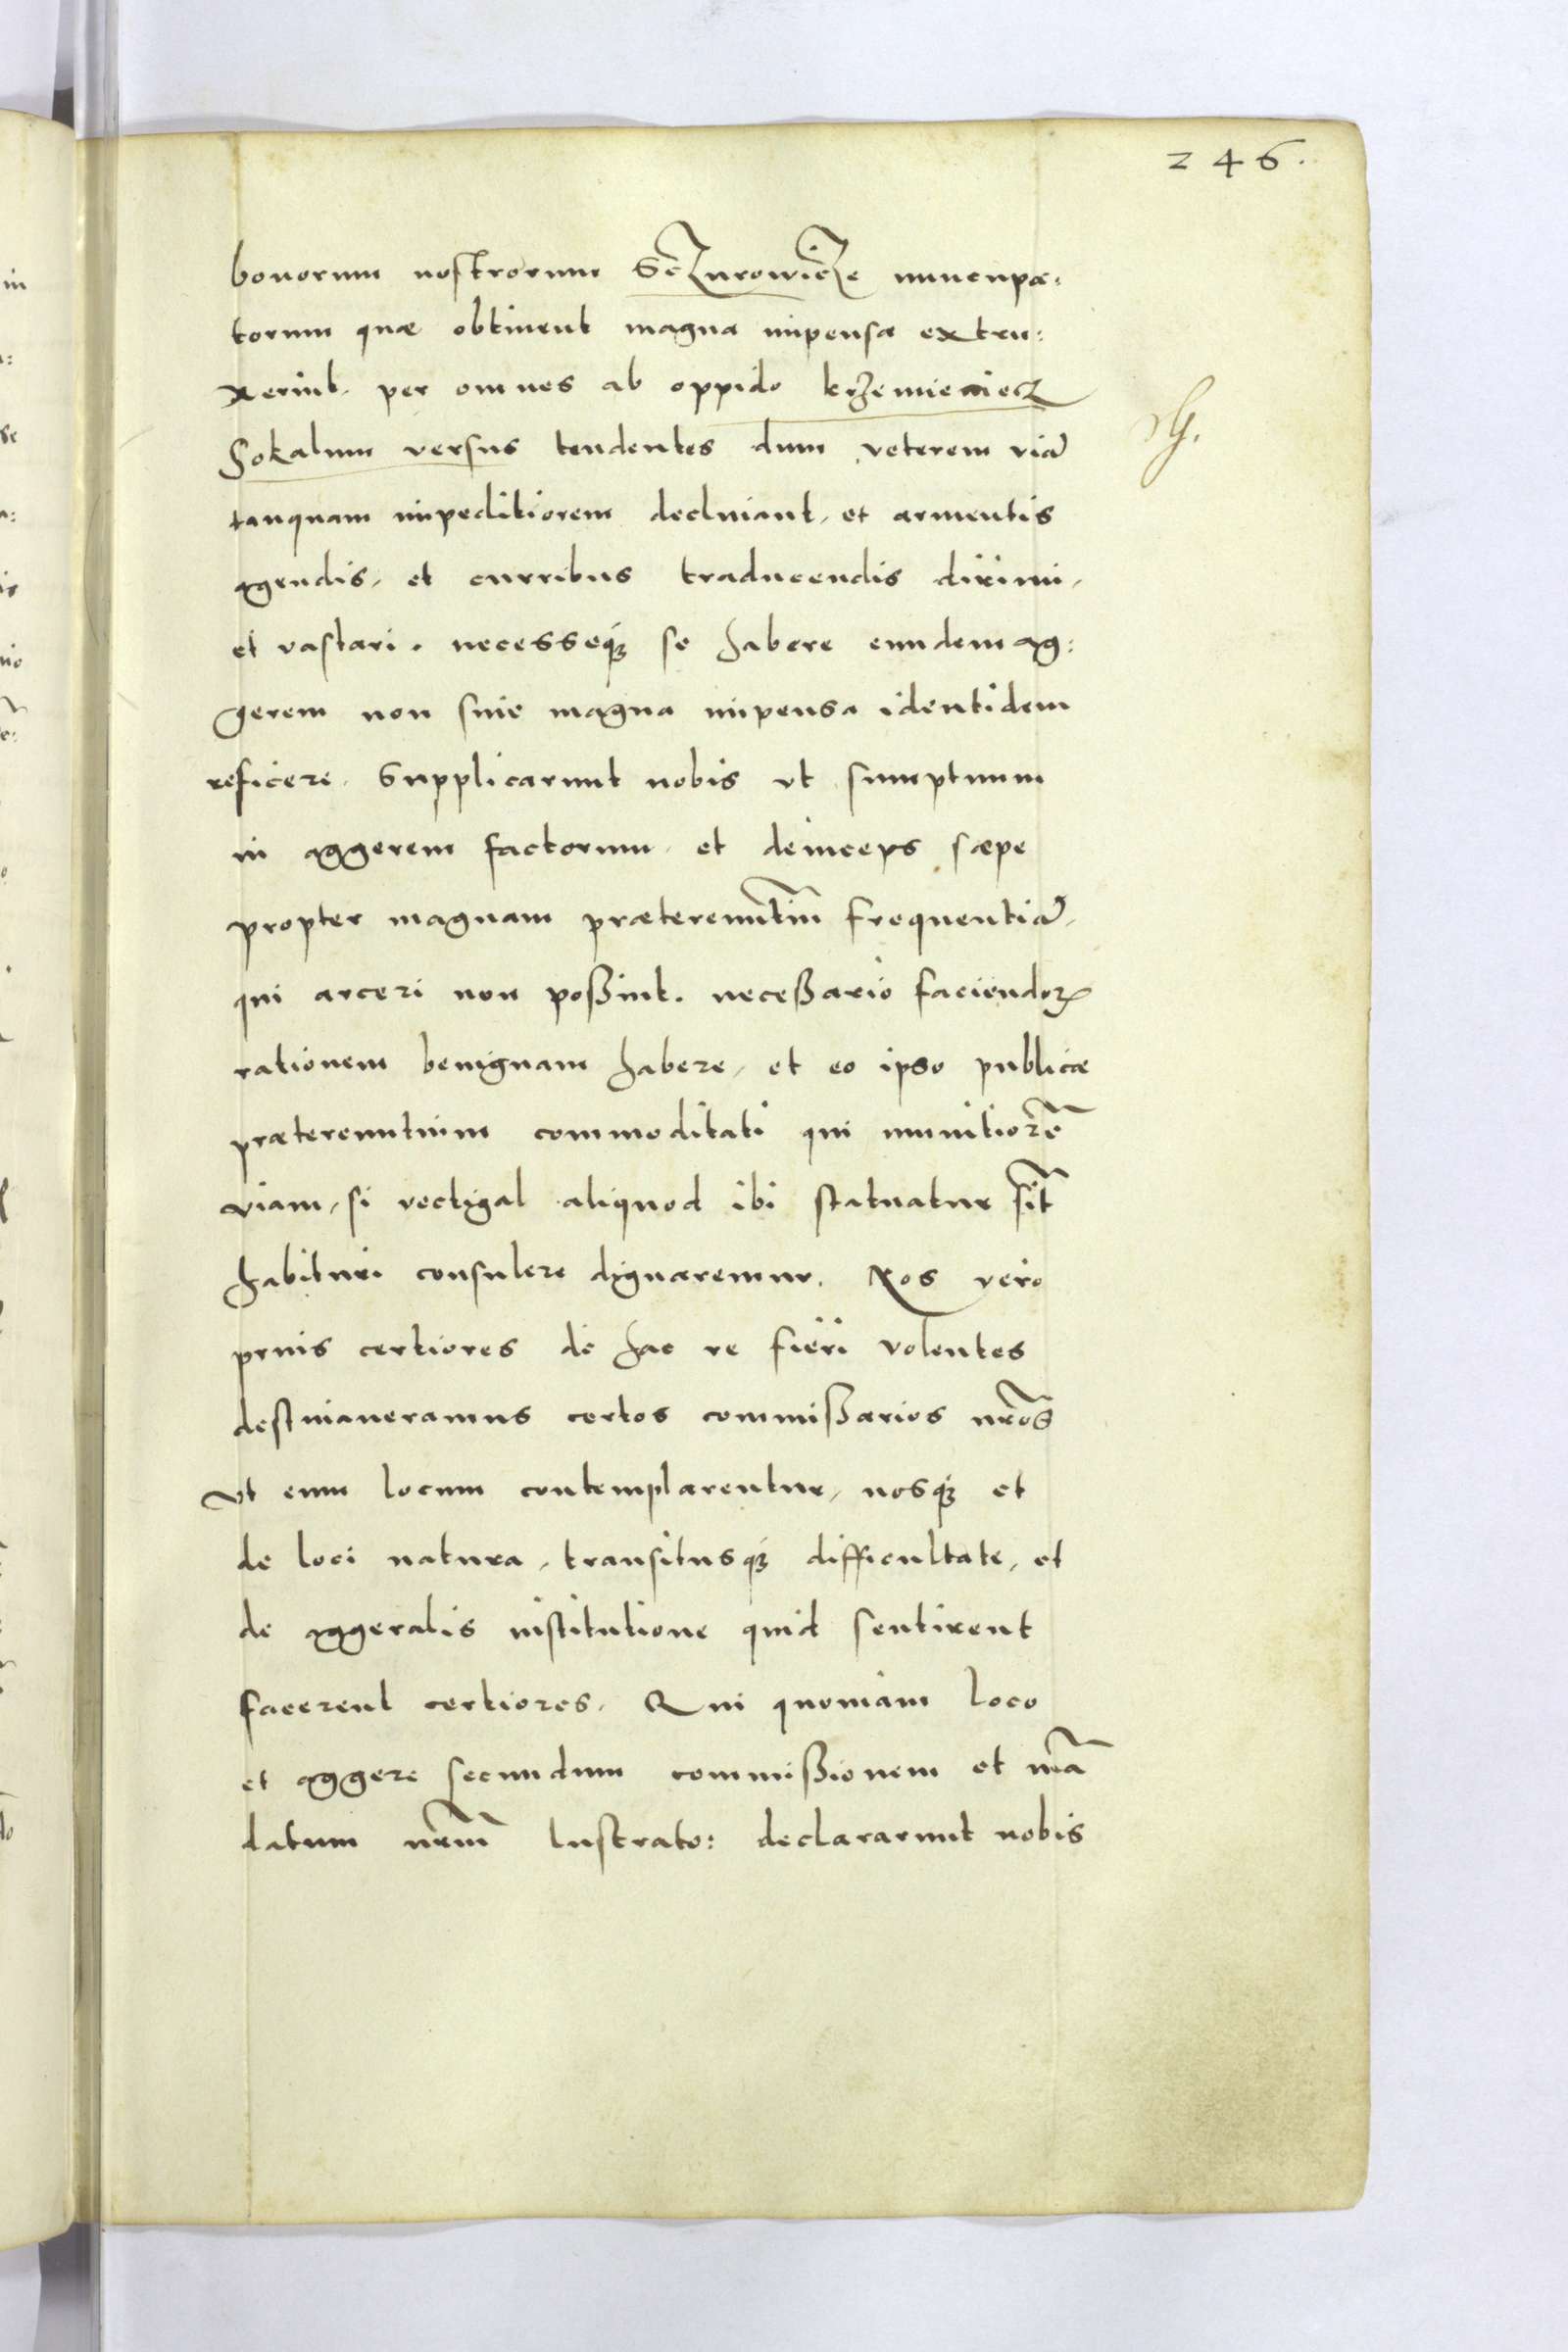 246.
bonorum nostrorum Sczurowicze nuncupa:
torum quæ obtinent magna impensa extru:
xerint. per omnes ab oppido krzemieniecz
Sokalum versus tendentes dum veterem viã
tanquam impeditiorem declinant, et armentis
agendis, et curribus traducendis dirimi,
et vastari. necesseq₃ se habere eundem ag:
gerem non sine magna impensa identidem
reficere. Supplicarunt nobis ut sumptuum
in aggerem factorum, et deinceps sæpe
propter magnam prætereuntiũ frequentiã,
qui arceri non poßint. neceßario faciendoꝝ
rationem benignam habere, et eo ipso publicæ
prætereuntium commoditati qui munitiorẽ
viam, si vectigal aliquod ibi statuatur sĩt
habituri consulere dignaremur. Nos vero
prius certiores de hac re fieri volentes
destinaueramus certos commißarios nr̃os
vt eum locum contemplarentur, nosq₃ et
de loci natura, transitusq₃ difficultate, et
de aggeralis institutione quid sentirent
facerent certiores. Qui quoniam loco
et aggere secundum commißionem et mã
datum nr̃m lustrato: declararunt nobis